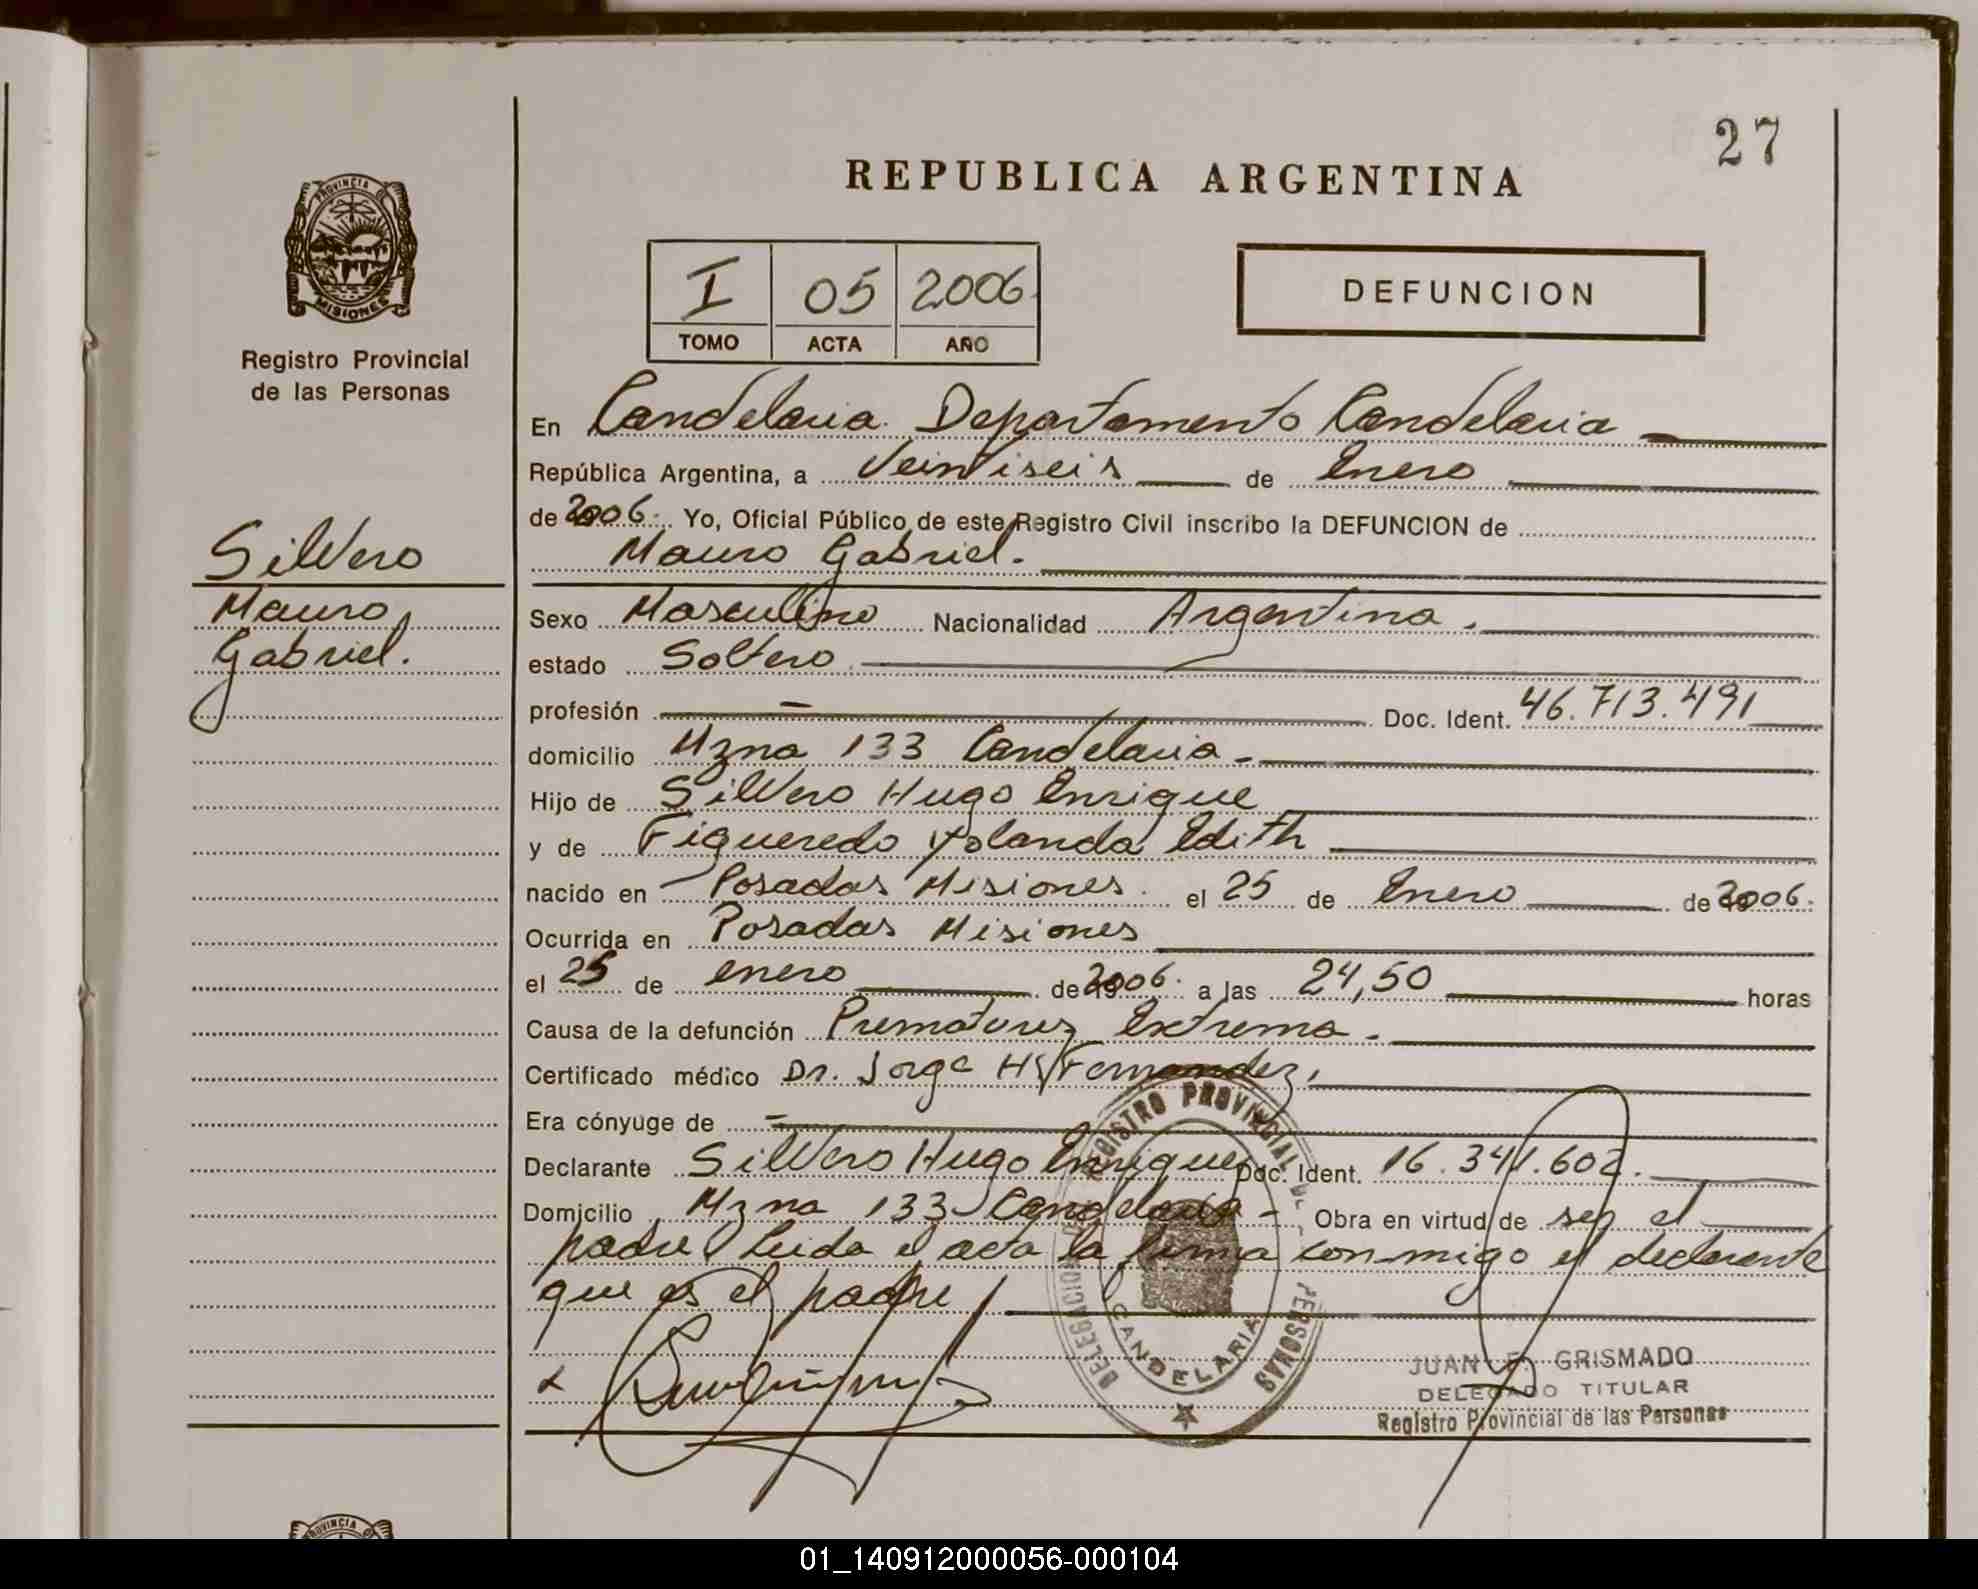 27
REPUBLICA ARGENTINA
PROVINCIA D
MISIONES
Registro Provincial
de las Personas
I 05 2006
TOMO ACTA AÑO
DEFUNCION
En Candelaria Departamento Candelaria
República Argentina, a Veintiseis de Enero
de 2006. Yo, Oficial Público de este Registro Civil inscribo la DEFUNCION de
Mauro Gabriel.
Silvero
Mauro
Gabriel.
Sexo Masculino Nacionalidad Argentina.
estado Soltero
profesión — Doc. Ident. 46.713.491
domicilio Mzna 133 Candelaria -
Hijo de Silvero Hugo Enrique
y de Figueredo Yolanda Edith
nacido en Posadas Misiones. el 25 de Enero de 2006.
Ocurrida en Posadas Misiones
el 25 de enero de 2006. a las 24,50 horas
Causa de la defunción Prematurez Extrema.
Certificado médico Dr. Jorge H Fernandez,
Era cónyuge de —
Declarante Silvero Hugo Enrique Doc. Ident. 16.341.602.
Domicilio Mzna 133 Candelaria - Obra en virtud de ser el
padre Leida el acta la firma conmigo el declarante
que es el padre
REGISTRO PROVINCIAL DE PERSONAS
DELEGACION
CANDELARIA
JUAN E. GRISMADO
DELEGADO TITULAR
Registro Provincial de las Personas
PROVINCIA D
01_140912000056-000104